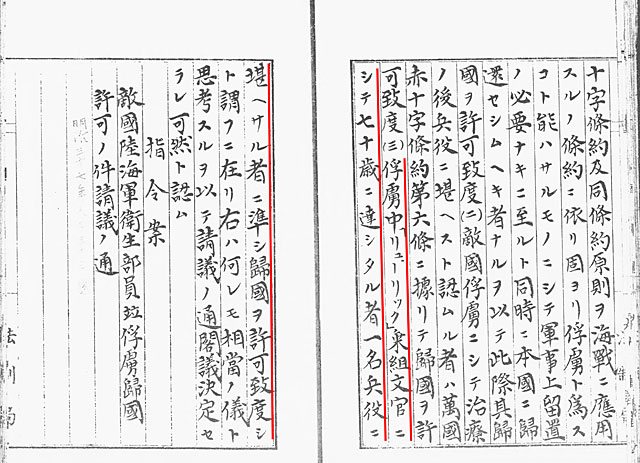 十字條約及同條約原則ヲ海戰ニ應用
スルノ條約ニ依リ固ヨリ俘虜ト爲ス
コト能ハサルモノニシテ軍事上留置
ノ必要ナキニ至ルト同時ニ本國ニ歸
還セシムヘキ者ナルヲ以テ此際其歸
國ヲ許可致度(二)敵國俘虜ニシテ治療
ノ後兵役ニ堪ヘスト認ムル者ハ萬國
赤十字條約第六條ニ據リテ歸國ヲ許
可致度(三)俘虜中「リューリック」乘組文官ニ
シテ七十歳ニ達シタル者一名兵役ニ
堪ヘサル者ニ準シ歸國ヲ許可致度シ
ト謂フニ在リ右ハ何レモ相當ノ儀ト
思考スルヲ以テ請議ノ通閣議決定セ
ラレ可然ト認ム
指令案
敵國陸海軍衛生部員竝俘虜歸國
許可ノ件請議ノ通
法制局